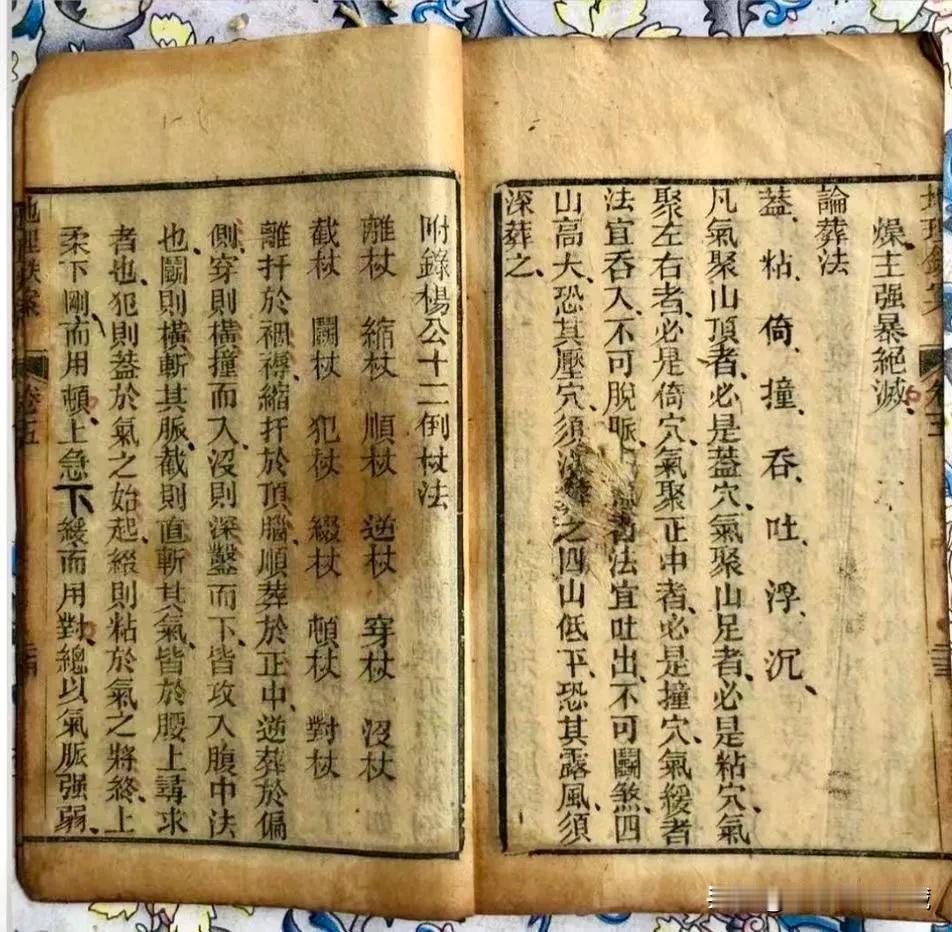 燥、主强暴絕滅、
論葬法
葢、粘、倚、撞、吞、吐、浮、沉、
凡氣聚山頂者、必是葢穴、氣聚山足者、必是粘穴、氣
聚左右者、必是倚穴、氣聚正中者、必是撞穴、氣緩者
法宜吞入、不可脫脈、者法宜吐出、不可鬭煞、四
山高大、恐其壓穴、須之、四山低平、恐其露風、須
深葬之、
附錄楊公十二倒杖法
離杖 縮杖 順杖 逆杖 穿杖 沒杖
截杖 鬭杖 犯杖 綴杖 頓杖 對杖
離扦於裀褥、縮扦於頂腦、順葬於正中、逆葬於偏
側、穿則橫撞而入、沒則深鑿而下、皆攻入腹中法
也、鬭則橫斬其脈、截則直斬其氣、皆於腰上尋求
者也、犯則葢於氣之始起、綴則粘於氣之將終、上
柔下剛、而用頓、上急下緩而用對、總以氣脈强弱、
地理鉄案
卷五